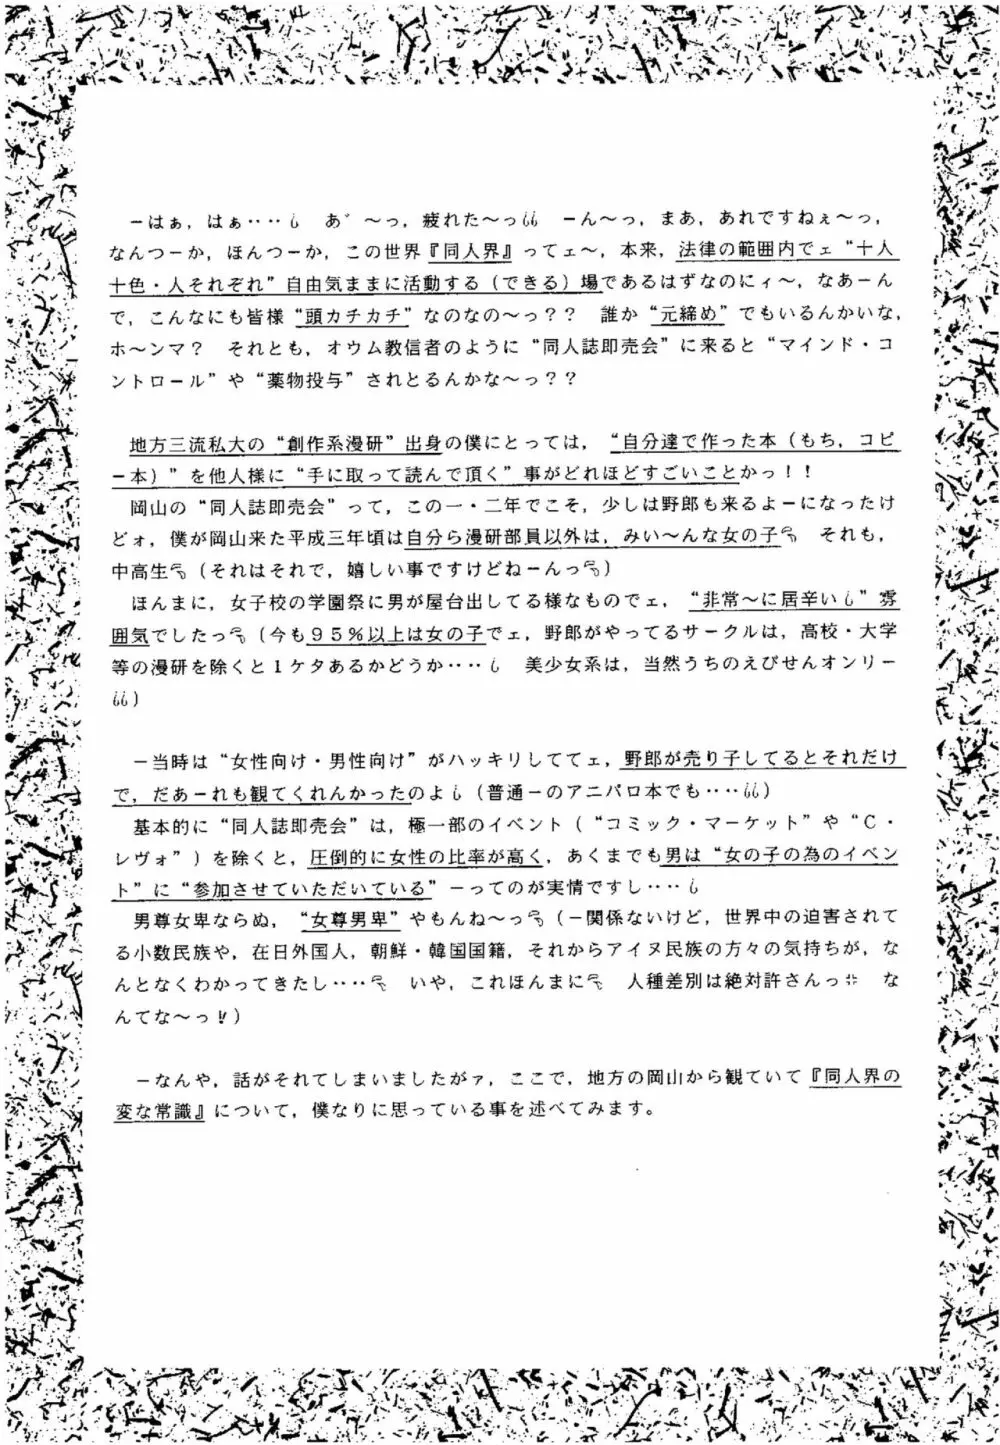 －はぁ，はぁ‥‥💧　あ゛～っ，疲れた～っ💧💧　－ん～っ，まあ，あれですねぇ～っ，
なんつーか，ほんつーか，この世界『同人界』ってェ～，本来，法律の範囲内でェ“十人
十色・人それぞれ”自由気ままに活動する（できる）場であるはずなのにィ～，なあーん
で，こんなにも皆様“頭カチカチ”なのなの～っ？？　誰か“元締め”でもいるんかいな，
ホ～ンマ？　それとも，オウム教信者のように“同人誌即売会”に来ると“マインド・コ
ントロール”や“薬物投与”されとるんかな～っ？？
地方三流私大の“創作系漫研”出身の僕にとっては，“自分達で作った本（もち，コピ
ー本）”を他人様に“手に取って読んで頂く”事がどれほどすごいことかっ！！
岡山の“同人誌即売会”って，この一・二年でこそ，少しは野郎も来るよーになったけ
どォ，僕が岡山来た平成三年頃は自分ら漫研部員以外は，みい～んな女の子　それも，
中高生（それはそれで，嬉しい事ですけどねーんっ）
ほんまに，女子校の学園祭に男が屋台出してる様なものでェ，“非常～に居辛い💧”雰
囲気でしたっ（今も９５％以上は女の子でェ，野郎がやってるサークルは，高校・大学
等の漫研を除くと１ケタあるかどうか‥‥💧　美少女系は，当然うちのえびせんオンリー
💧💧）
－当時は“女性向け・男性向け”がハッキリしててェ，野郎が売り子してるとそれだけ
で，だあーれも観てくれんかったのよ💧（普通－のアニパロ本でも‥‥💧💧）
基本的に“同人誌即売会”は，極一部のイベント（“コミック・マーケット”や“Ｃ・
レヴォ”）を除くと，圧倒的に女性の比率が高く，あくまでも男は“女の子の為のイベン
ト”に“参加させていただいている”－ってのが実情ですし‥‥💧
男尊女卑ならぬ，“女尊男卑”やもんね～っ（－関係ないけど，世界中の迫害されて
る小数民族や，在日外国人，朝鮮・韓国国籍，それからアイヌ民族の方々の気持ちが，な
んとなくわかってきたし‥‥　いや，これほんまに　人種差別は絶対許さんっ💢　な
んてな～っ!!）
－なんや，話がそれてしまいましたがァ，ここで，地方の岡山から観ていて『同人界の
変な常識』について，僕なりに思っている事を述べてみます。